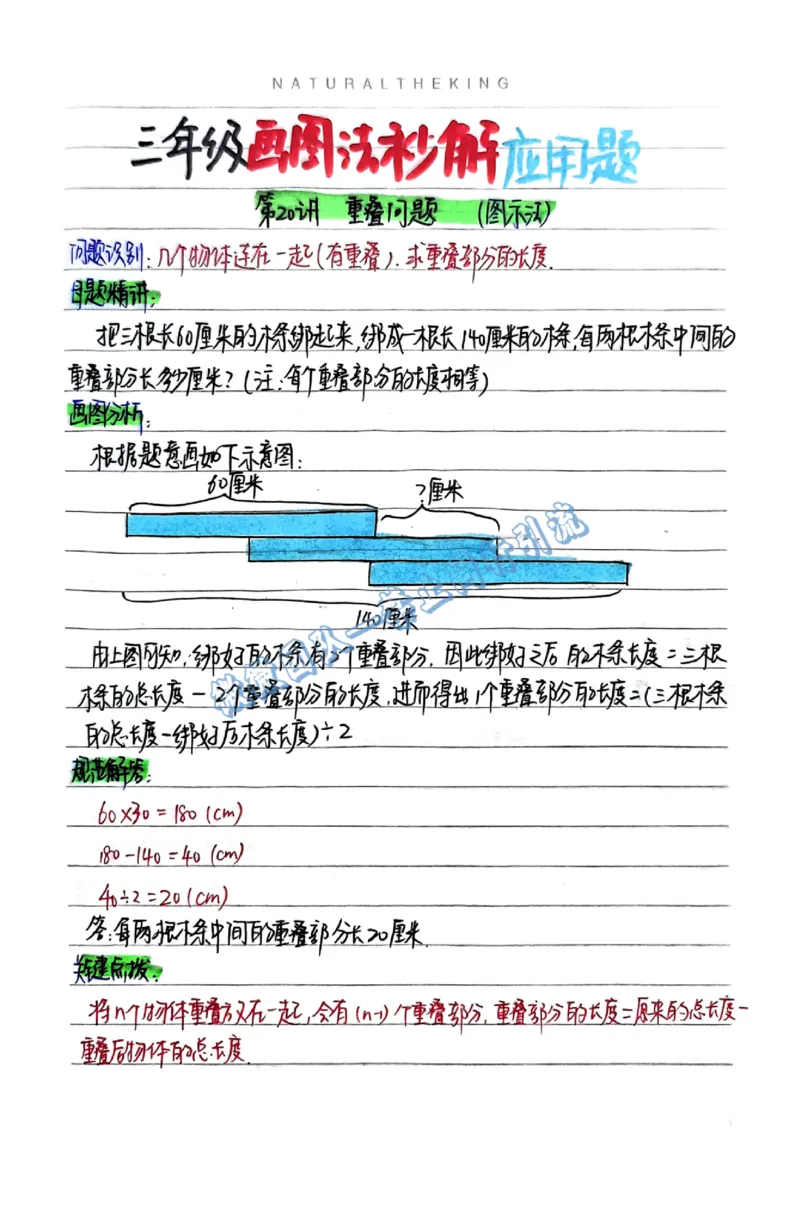 NATURALTHEKING
三年级画图法秒解应用题
第20讲 重叠问题 (图示法)
问题识别：几个物体连在一起(有重叠)，求重叠部分的长度.
目题精讲：
把三根长60厘米的木条绑起来,绑成一根长140厘米的木条,每两根木条中间的
重叠部分长多少厘米?(注:每个重叠部分的长度相等)
画图分析：
根据题意画如下示意图：
60厘米
?厘米
140厘米
由上图可知,绑好的木条有2个重叠部分，因此绑好之后的木条长度=三根
木条的总长度-2个重叠部分的长度,进而得出1个重叠部分的长度=(三根木条
的总长度-绑好后木条长度)÷2
规范解答：
60×30=180(cm)
180-140=40(cm)
40÷2=20(cm)
答:每两根木条中间的重叠部分长20厘米.
关键点拨：
将n个物体重叠放在一起,会有(n-1)个重叠部分,重叠部分的长度=原来的总长度-
重叠后物体的总长度.